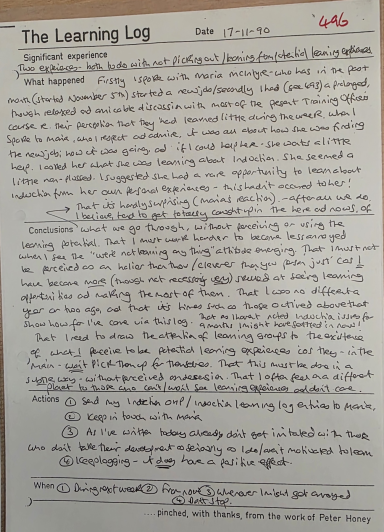 496
The Learning Log Date 17-11-90
Significant experience
Two experiences - both to do with not picking out / learning from potential learning experiences
What happened Firstly I spoke with Maria McIntyre - who has in the past
month (started November 5th) started a new job / secondly I had (see 493) a prolonged,
though relaxed and amicable discussion with most of the present Training Officers
course re. their perception that they had learned little during the week. When I
spoke to Maria, who I respect and admire, it was all about how she was finding
the new job; how it was going, and if I could help her. She wants a little
help. I asked her what she was learning about Induction. She seemed a
little non-plussed. I suggested she had a rare opportunity to learn about
Induction from her own personal experiences - this hadn't occurred to her!
That its hardly surprising (Maria's reaction) - after all we do,
I believe, tend to get totally caught up in the here and now, of
Conclusions what we go through, without perceiving or using the
learning potential. That I must work harder to become less annoyed
when I see the "we're not learning any thing" attitude emerging. That I must not
be perceived as an holier than thou / cleverer than you person just 'cos I
have become more (though not necessarily very) skilled at seeing learning
opportunities and making the most of them. That I was no different a
year or two ago, and that its times such as those outlined above that
show how far I've come via this log. That as I haven't noted Induction issues for
9 months I might have spotted it now!
That I need to draw the attention of learning groups to the existence
of what I perceive to be potential learning experiences cos they - in the
main - wont pick them up for themselves. That this must be done in a
subtle way - without perceived condescension. That I often feel on a different
planet to those who can't/wont see learning experiences and don't care.
Actions ① Send my Induction and / Induction learning log entries to Maria,
② Keep in touch with Maria
③ As I've written today already don't get irritated with those
who don't take their development as seriously as I do / aren't motivated to learn
④ Keep logging - it does have a positive effect.
When ① During next week ② From now ③ whenever I might get annoyed
④ Don't stop.
....pinched, with thanks, from the work of Peter Honey